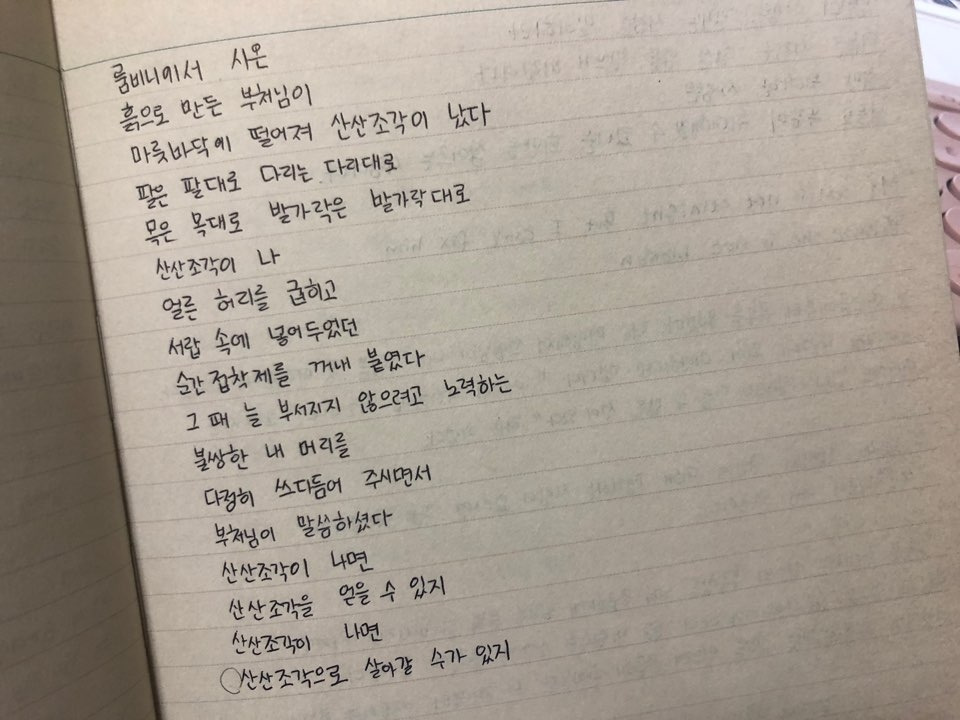 룸비니에서 사온
흙으로 만든 부처님이
마룻바닥에 떨어져 산산조각이 났다
팔은 팔대로 다리는 다리대로
목은 목대로 발가락은 발가락대로
산산조각이 나
얼른 허리를 굽히고
서랍 속에 넣어두었던
순간접착제를 꺼내 붙였다
그 때 늘 부서지지 않으려고 노력하는
불쌍한 내 머리를
다정히 쓰다듬어 주시면서
부처님이 말씀하셨다
산산조각이 나면
산산조각을 얻을 수 있지
산산조각이 나면
산산조각으로 살아갈 수가 있지